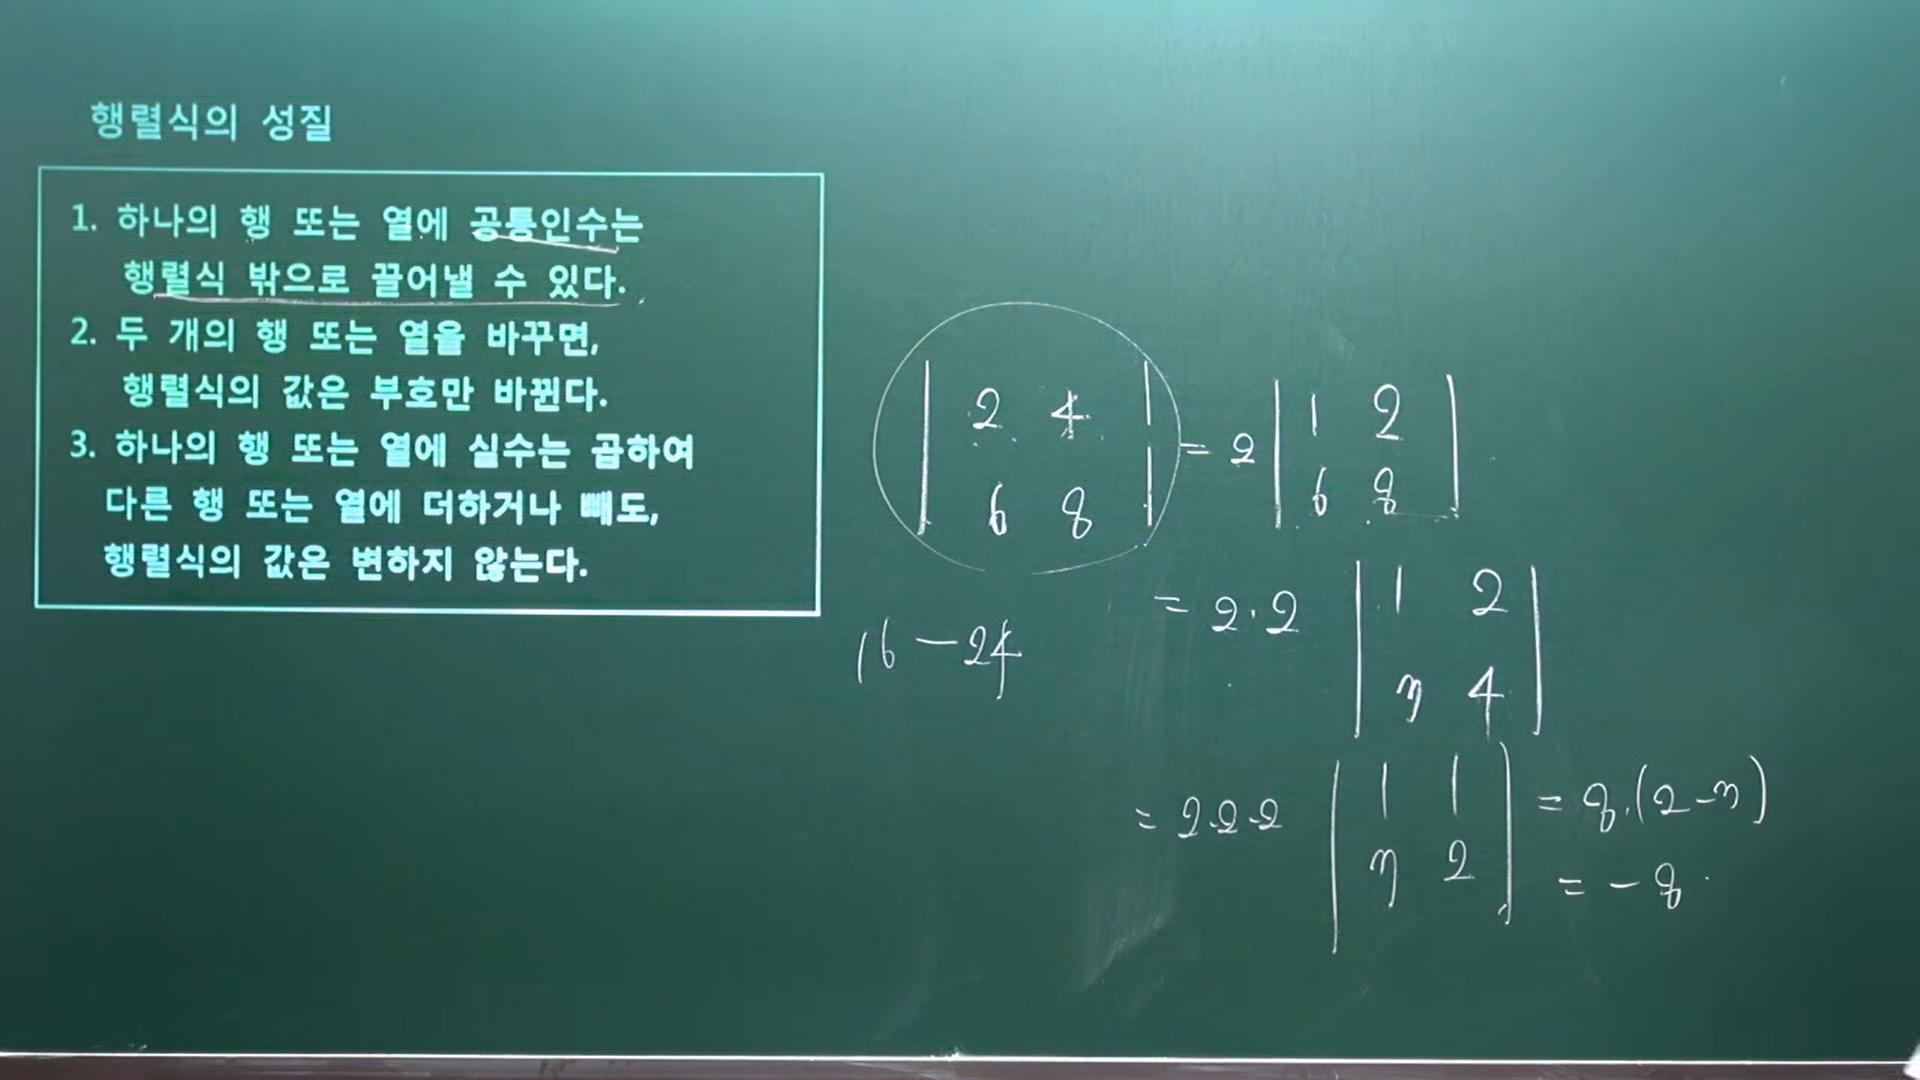 행렬식의 성질
1. 하나의 행 또는 열에 공통인수는
행렬식 밖으로 끌어낼 수 있다.
2. 두 개의 행 또는 열을 바꾸면,
행렬식의 값은 부호만 바뀐다.
3. 하나의 행 또는 열에 실수는 곱하여
다른 행 또는 열에 더하거나 빼도,
행렬식의 값은 변하지 않는다.
| 2 4 | = 2 | 1 2 |
| 6 8 | | 6 8 |
16 - 24
= 2·2 | 1 2 |
| 3 4 |
= 2·2·2 | 1 1 | = 8·(2-3)
| 3 2 | = -8